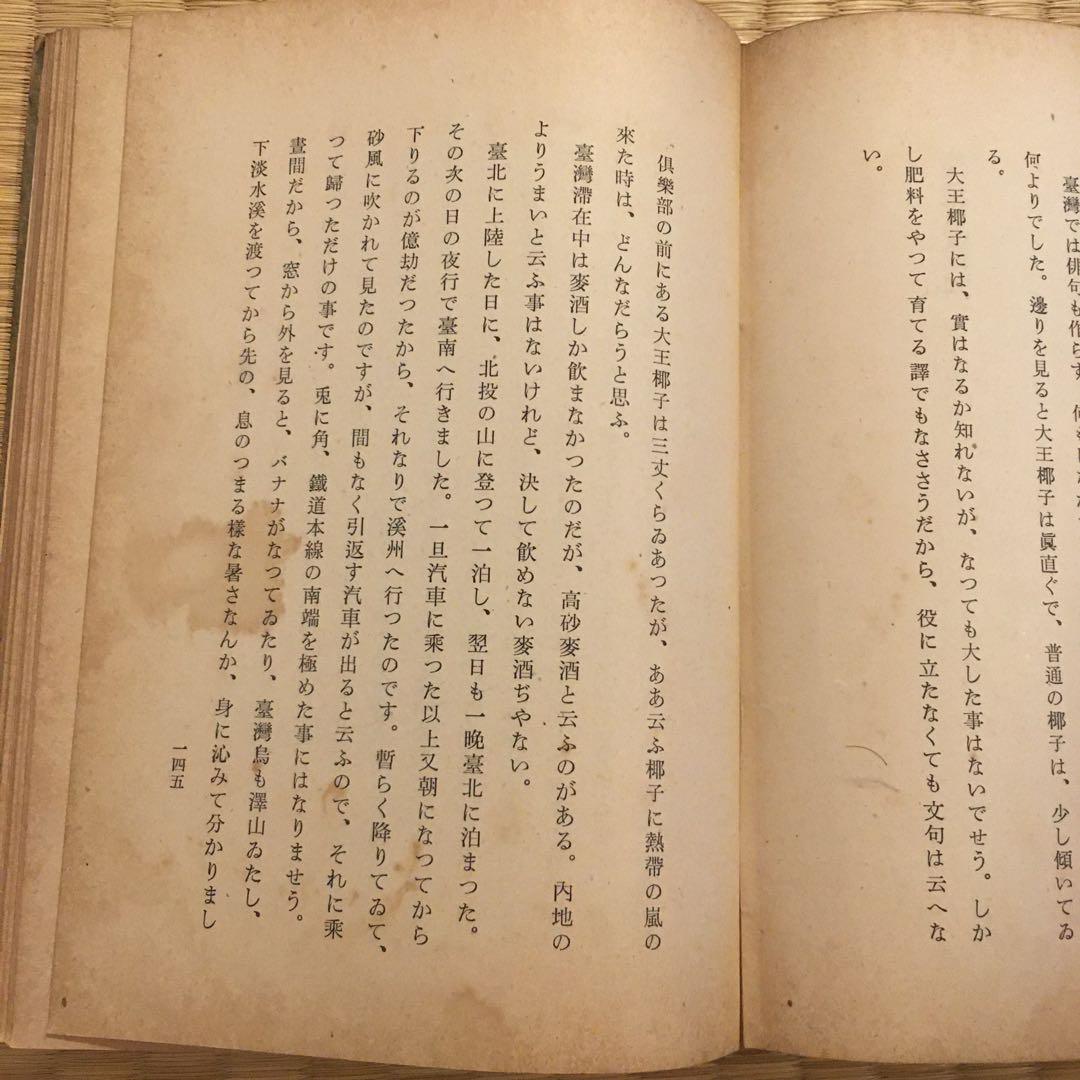 臺灣では俳句も作らず、何も
何よりでした。邊りを見ると大王椰子は眞直ぐで、普通の椰子は、少し傾いてゐ
る。
大王椰子には、實はなるか知れないが、なつても大した事はないでせう。しか
し肥料をやつて育てる譯でもなささうだから、役に立たなくても文句は云へな
い。
俱樂部の前にある大王椰子は三丈くらゐあつたが、ああ云ふ椰子に熱帶の嵐の
來た時は、どんなだらうと思ふ。
臺灣滯在中は麥酒しか飮まなかつたのだが、高砂麥酒と云ふのがある。內地の
よりうまいと云ふ事はないけれど、決して飮めない麥酒ぢやない。
臺北に上陸した日に、北投の山に登つて一泊し、翌日も一晩臺北に泊まつた。
その次の日の夜行で臺南へ行きました。一旦汽車に乘つた以上又朝になつてから
下りるのが億劫だつたから、それなりで溪州へ行つたのです。暫らく降りてゐて、
砂風に吹かれて見たのですが、間もなく引返す汽車が出ると云ふので、それに乘
つて歸つただけの事です。兎に角、鐵道本線の南端を極めた事にはなりませう。
晝間だから、窓から外を見ると、バナナがなつてゐたり、臺灣烏も澤山ゐたし、
下淡水溪を渡つてから先の、息のつまる樣な暑さなんか、身に沁みて分かりまし
一四五